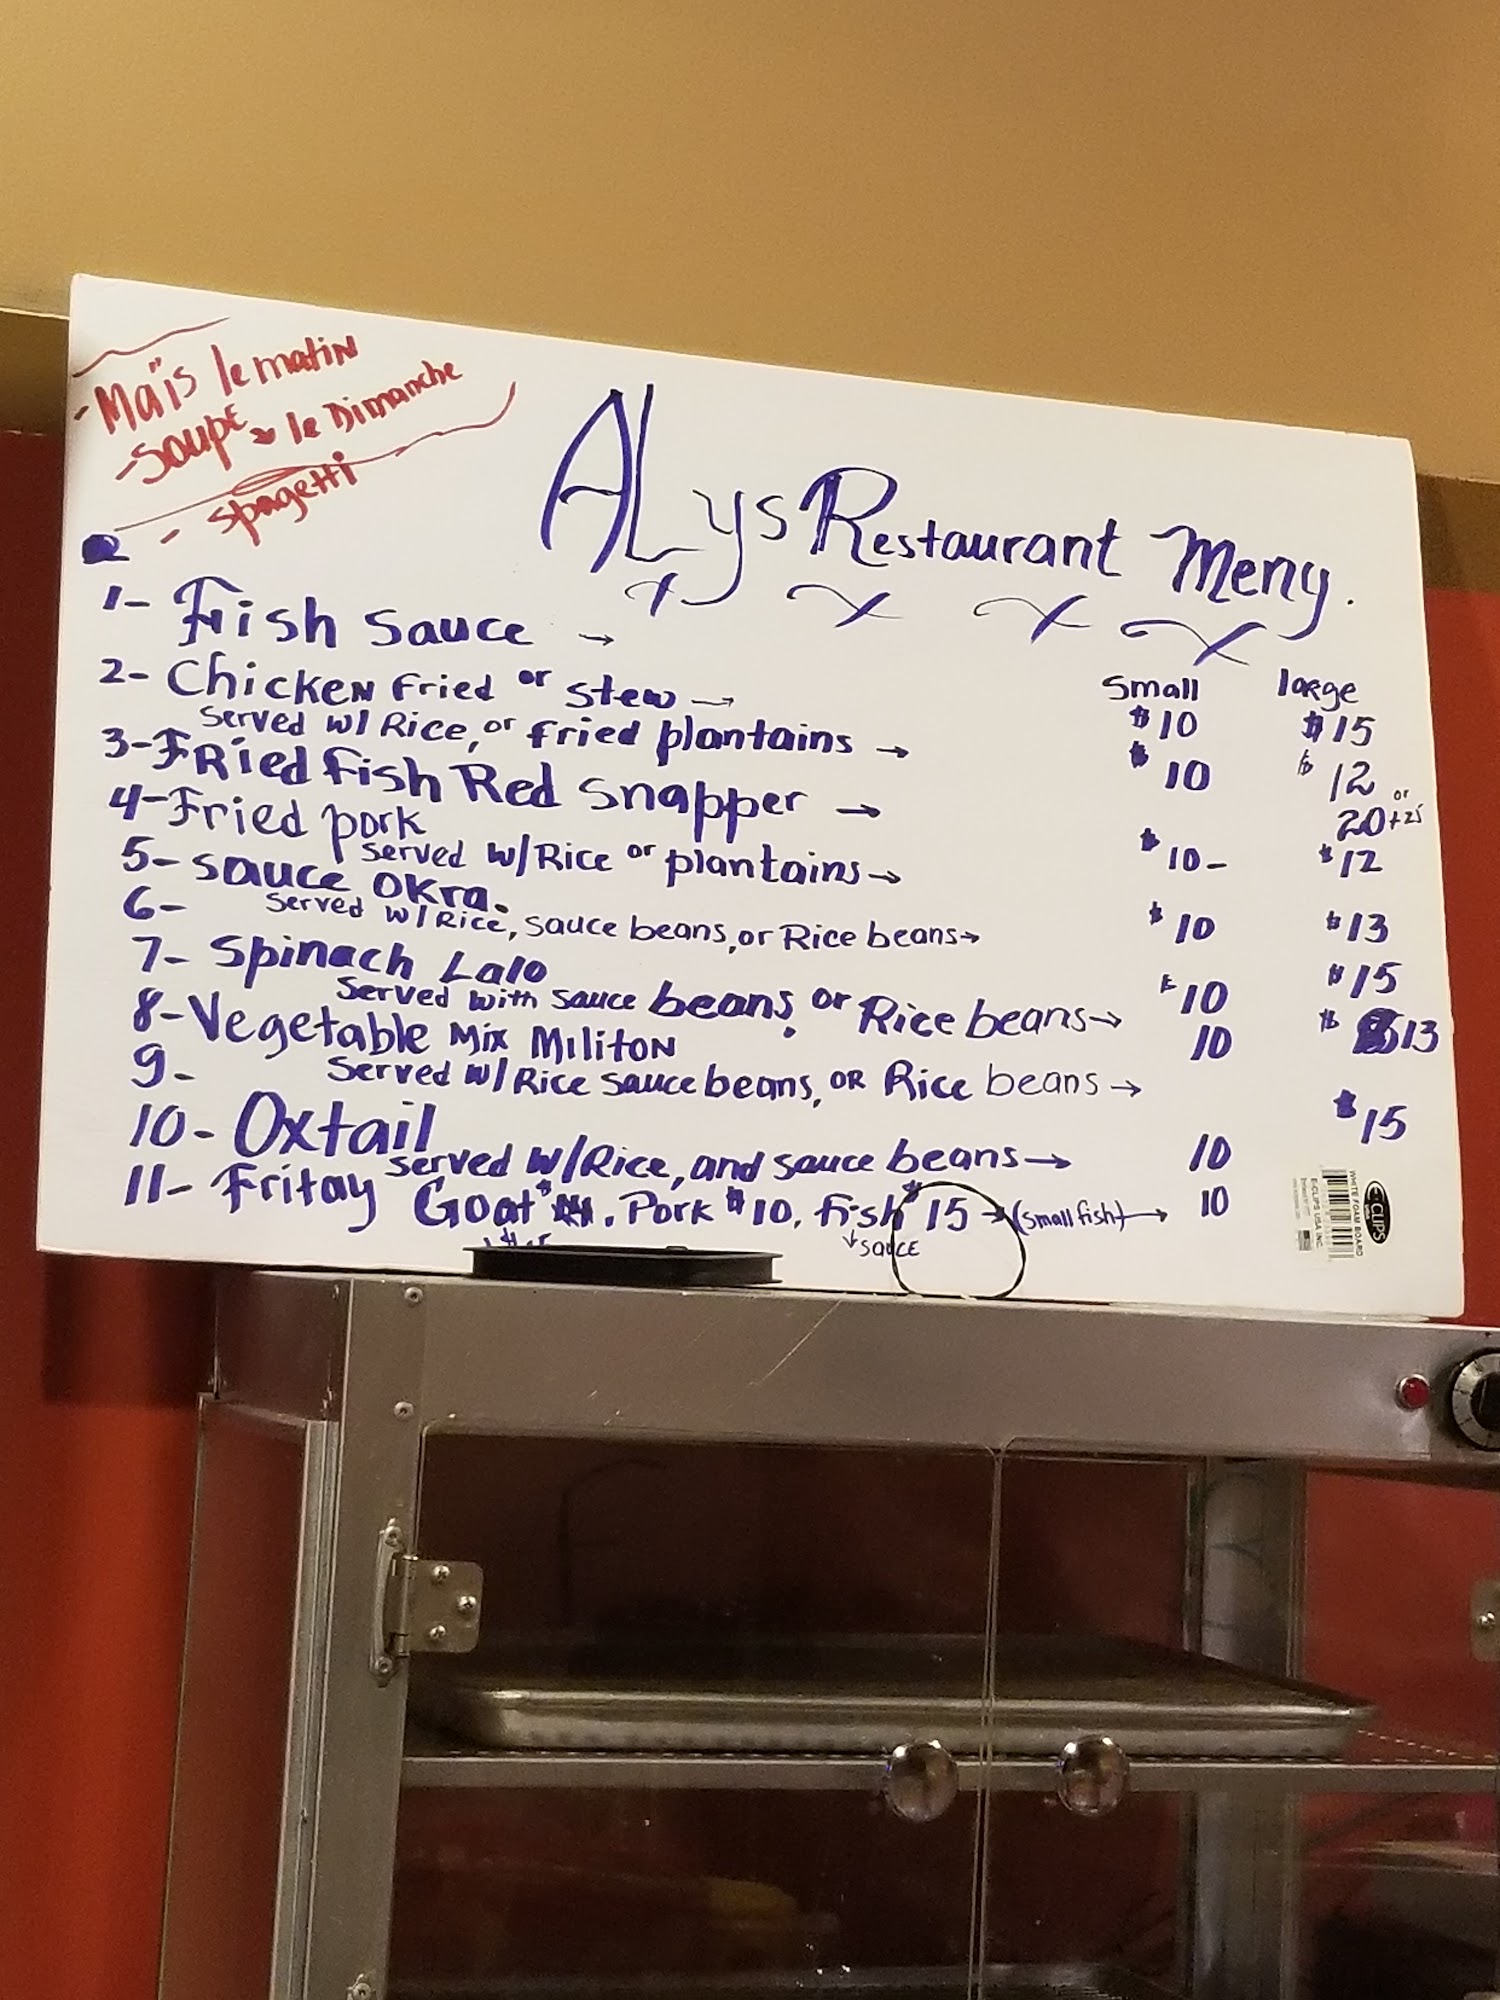 - Maïs le matin
- Soupe le Dimanche
- spagetti
ALys Restaurant Meny.
small large
1- Fish Sauce → $10 $15
2- Chicken Fried or stew →
served w/ Rice, or fried plantains → $10 $12
3- Fried fish Red Snapper → or 20 + 25
4- Fried pork
served w/Rice or plantains → $10- $12
5- sauce okra.
6- served w/Rice, sauce beans, or Rice beans → $10 $13
7- Spinach Lalo
served with sauce beans, or Rice beans → $10 $15
8- Vegetable Mix Militon 10 $13
9- served w/Rice sauce beans, OR Rice beans →
10- Oxtail
served w/Rice, and sauce beans → 10 $15
11- Fritay Goat $. Pork $10, fish $15 → (small fish) → 10
↓ sauce
E-CLIPS
WHITE FOAM BOARD
E-CLIPS USA INC.